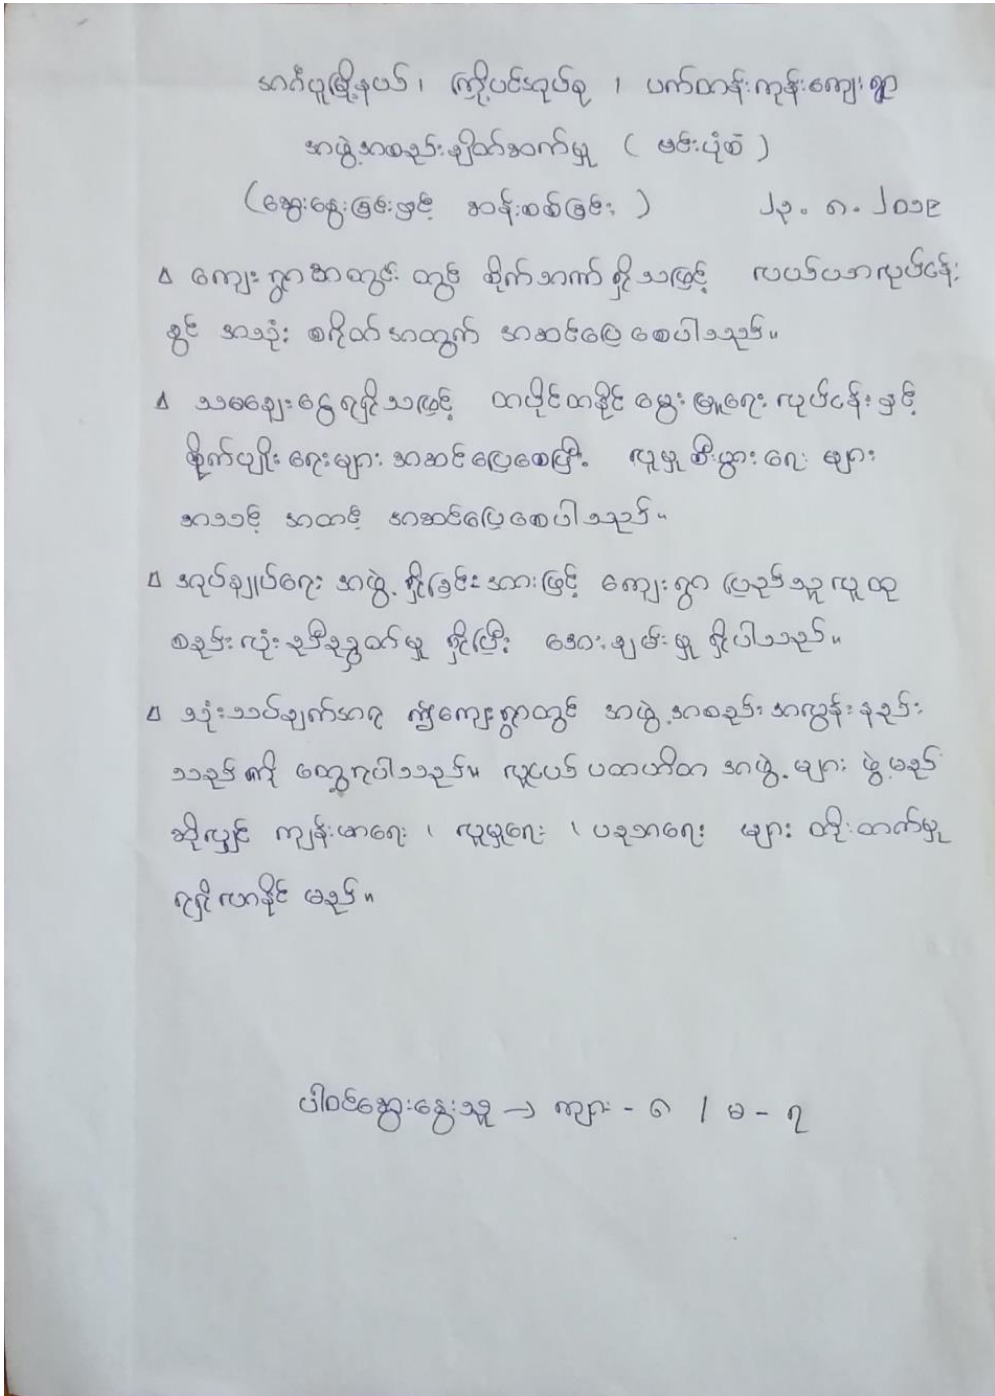 အင်္ဂပူမြို့နယ်၊ ကြို့ပင်အုပ်စု ၊ ပက်တန်းကုန်းကျေးရွာ
အဖွဲ့အစည်းချိတ်ဆက်မှု ( ဗင်းပုံစံ )
(ဆွေးနွေးခြင်းနှင့် ဆန်းစစ်ခြင်း ) ၂၃. ၈. ၂၀၁၉
Δ ကျေးရွာအတွင်း တွင် စိုက်ဘဏ် ရှိသဖြင့် လယ်ယာလုပ်ငန်း
ခွင် အသုံး စရိတ်အတွက် အဆင်ပြေစေပါသည်။
Δ သမချေးငွေရရှိသဖြင့် တပိုင်တနိုင် မွေးမြူရေး လုပ်ငန်းနှင့်
စိုက်ပျိုးရေးများ အဆင်ပြေစေပြီး လူမှုစီးပွားရေး များ
အသင့် အတင့် အဆင်ပြေစေပါသည်။
Δ အုပ်ချုပ်ရေး အဖွဲ့ ရှိခြင်းအားဖြင့် ကျေးရွာ ပြည်သူလူထု
စည်းလုံးညီညွတ်မှု ရှိပြီး အေးချမ်းမှု ရှိပါသည်။
Δ သုံးသပ်ချက်အရ ဤကျေးရွာတွင် အဖွဲ့အစည်းအလွန်နည်း
သည်ကို တွေ့ရပါသည်။ လူငယ် ပရဟိတ အဖွဲ့များ ဖွဲ့မည်
ဆိုလျှင် ကျန်းမာရေး ၊ လူမှုရေး ၊ ပညာရေး များ တိုးတက်မှု
ရရှိလာနိုင် မည်။
ပါဝင်ဆွေးနွေးသူ → ကျား - ၈ / မ - ၇